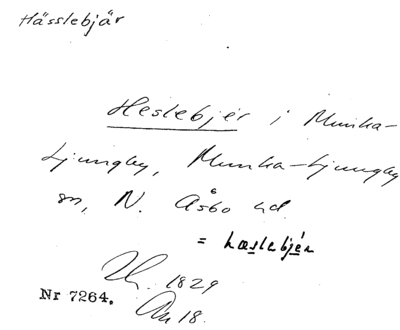 Hässlebjär
Heslebjer i Munka-
Ljungby, Munka-Ljungby
sn, N. Åsbo hd.
= hæslebjér
1829
Nr 7264.
18.